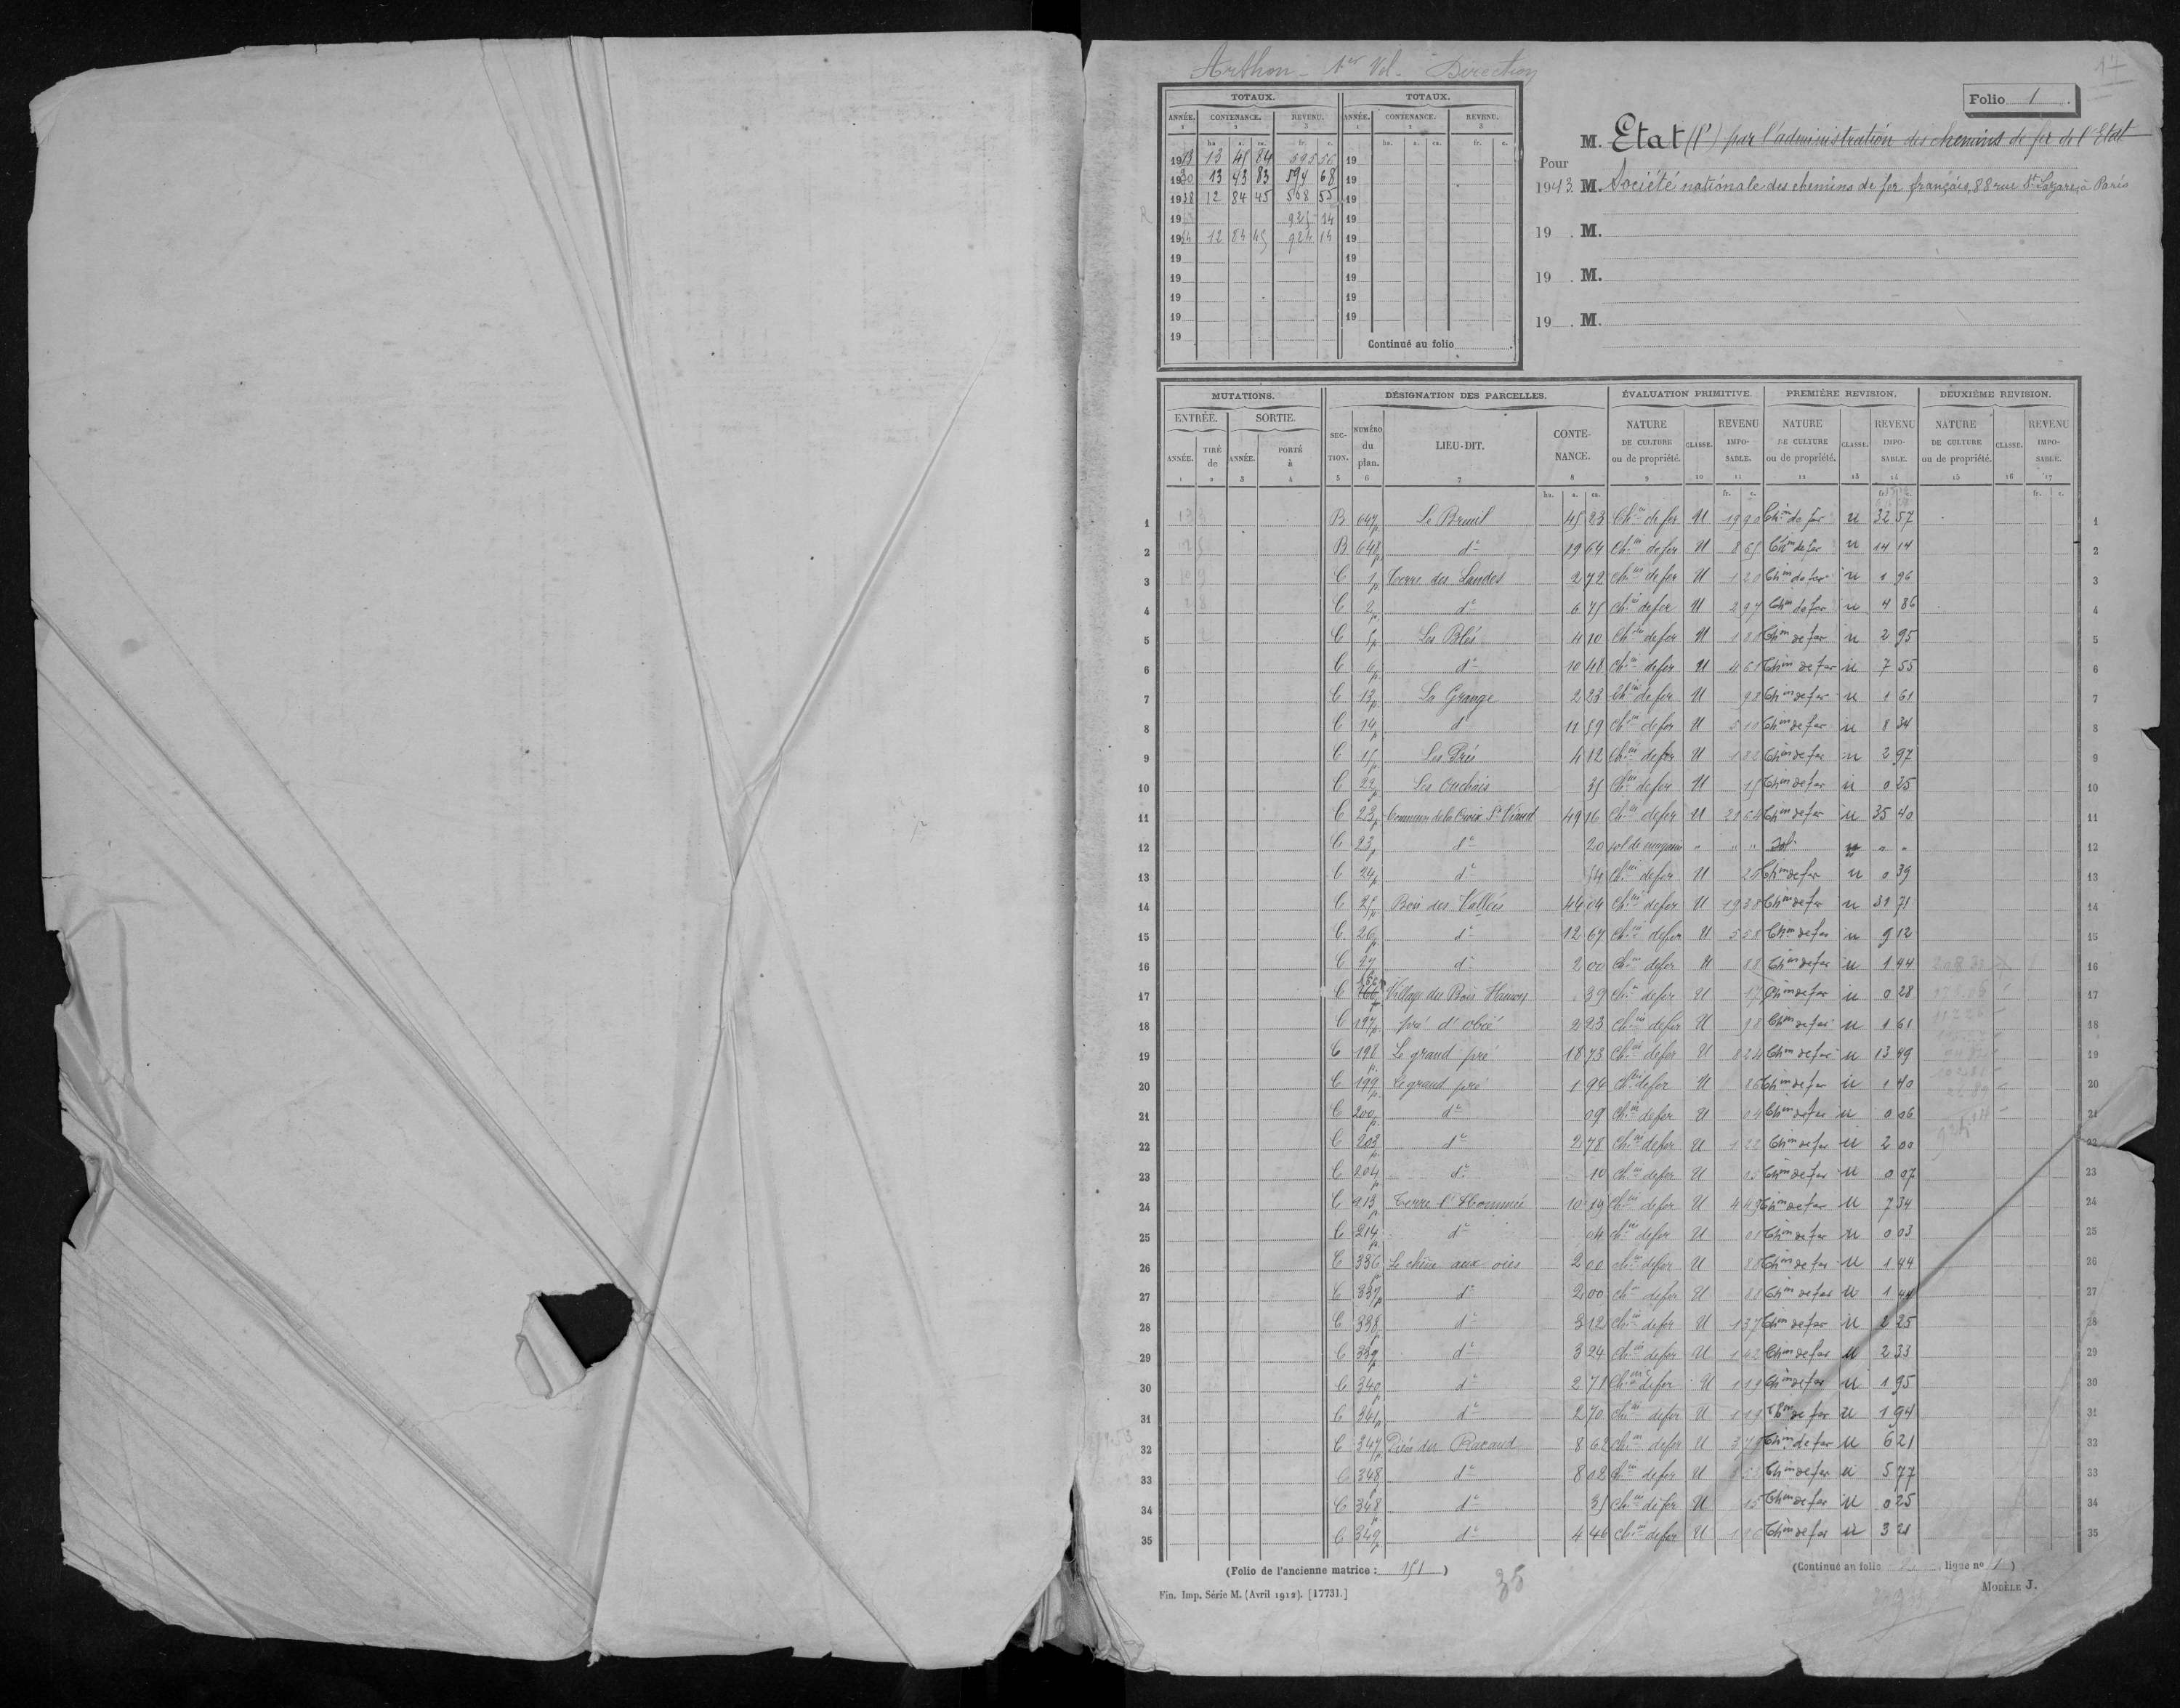 Arthon - 1er Vol. - Direction
17
Folio 1.
TOTAUX. TOTAUX.
ANNÉE. CONTENANCE. REVENU. ANNÉE. CONTENANCE. REVENU.
1 2 3 1 2 3
ha. a. ca. fr. c. ha. a. ca. fr. c.
1913 13 45 84 595 56 19
1930 13 43 83 594 68 19
1938 12 84 45 568 55 19
19 925 14 19
1944 12 84 45 924 14 19
19 19
19 19
19 19
19 19
19
Continué au folio
M. Etat (l') par l'administration des chemins de fer de l'Etat
Pour
1943 M. Société nationale des chemins de fer français, 88 rue St Lazare, à Paris
19 . M.
19 . M.
19 . M.
MUTATIONS. DÉSIGNATION DES PARCELLES. ÉVALUATION PRIMITIVE. PREMIÈRE REVISION. DEUXIÈME REVISION.
ENTRÉE. SORTIE. SECTION. NUMÉRO du plan. LIEU-DIT. CONTENANCE. NATURE DE CULTURE ou de propriété. CLASSE. REVENU IMPOSABLE. NATURE DE CULTURE ou de propriété. CLASSE. REVENU IMPOSABLE. NATURE DE CULTURE ou de propriété. CLASSE. REVENU IMPOSABLE.
ANNÉE. TIRÉ de ANNÉE. PORTÉ à
1 2 3 4 5 6 7 8 9 10 11 12 13 14 15 16 17
ha. a. ca. fr. c. fr. c. fr. c.
1 B 647p Le Breuil 45 23 Ch.in de fer U 19 90 Ch.in de fer u 32 57 1
2 B 648p do 19 64 Ch.in de fer U 8 65 Ch.in de fer u 14 14 2
3 C 1p Terre des Landes 2 72 Ch.in de fer U 1 20 Ch.in de fer u 1 96 3
4 C 2p do 6 75 Ch.in de fer U 2 97 Ch.in de fer u 4 86 4
5 C 5p Les Blés 4 10 Ch.in de fer U 1 80 Ch.in de fer u 2 95 5
6 C 6p do 10 48 Ch.in de fer U 4 61 Ch.in de fer u 7 55 6
7 C 13p La Grange 2 23 Ch.in de fer U 98 Ch.in de fer u 1 61 7
8 C 14p do 11 59 Ch.in de fer U 5 10 Ch.in de fer u 8 34 8
9 C 15p Les Prés 4 12 Ch.in de fer U 1 82 Ch.in de fer u 2 97 9
10 C 22p Les Ouchais 35 Ch.in de fer U 15 Ch.in de fer u 0 25 10
11 C 23p Commun de la Croix St Viaud 49 16 Ch.in de fer U 21 64 Ch.in de fer u 35 40 11
12 C 23p do 20 sol de magasin " " " Sol " " 12
13 C 24p do 54 Ch.in de fer U 24 Ch.in de fer u 0 39 13
14 C 25p Bois des Vallées 44 04 Ch.in de fer U 19 38 Ch.in de fer u 31 71 14
15 C 26p do 12 67 Ch.in de fer U 5 58 Ch.in de fer u 9 12 15
16 C 27 do 2 00 Ch.in de fer U 88 Ch.in de fer u 1 44 16
17 C 166p Village du Bois Hamon 39 Ch.in de fer U 17 Ch.in de fer u 0 28 17
18 C 197p pré d' 2 23 Ch.in de fer U 98 Ch.in de fer u 1 61 18
19 C 198p Le grand pré 18 73 Ch.in de fer U 8 24 Ch.in de fer u 13 49 19
20 C 199p Le grand pré 1 94 Ch.in de fer U 86 Ch.in de fer u 1 40 20
21 C 200p do 09 Ch.in de fer U 04 Ch.in de fer u 0 06 21
22 C 203p do 2 78 Ch.in de fer U 1 22 Ch.in de fer u 2 00 22
23 C 204p do 10 Ch.in de fer U 05 Ch.in de fer u 0 07 23
24 C 213p Terre l'Hommée 10 19 Ch.in de fer U 4 49 Ch.in de fer u 7 34 24
25 C 214p do 04 Ch.in de fer U 01 Ch.in de fer u 0 03 25
26 C 336p Le chêne aux oies 2 00 Ch.in de fer U 88 Ch.in de fer u 1 44 26
27 C 337p do 2 00 Ch.in de fer U 88 Ch.in de fer u 1 44 27
28 C 338p do 3 12 Ch.in de fer U 1 37 Ch.in de fer u 2 25 28
29 C 339p do 3 24 Ch.in de fer U 1 42 Ch.in de fer u 2 33 29
30 C 340p do 2 71 Ch.in de fer U 1 19 Ch.in de fer u 1 95 30
31 C 341p do 2 70 Ch.in de fer U 1 19 Ch.in de fer u 1 94 31
32 C 347p Pièce du Racaud 8 62 Ch.in de fer U 3 79 Ch.in de fer u 6 21 32
33 C 348p do 8 02 Ch.in de fer U Ch.in de fer u 5 77 33
34 C 348p do 35 Ch.in de fer U 15 Ch.in de fer u 0 25 34
35 C 349p do 4 46 Ch.in de fer U Ch.in de fer u 3 21 35
(Folio de l'ancienne matrice : 151 ) 35 (Continué au folio , ligne no 1 )
Fin. Imp. Série M. (Avril 1912). [17731.] MODÈLE J.